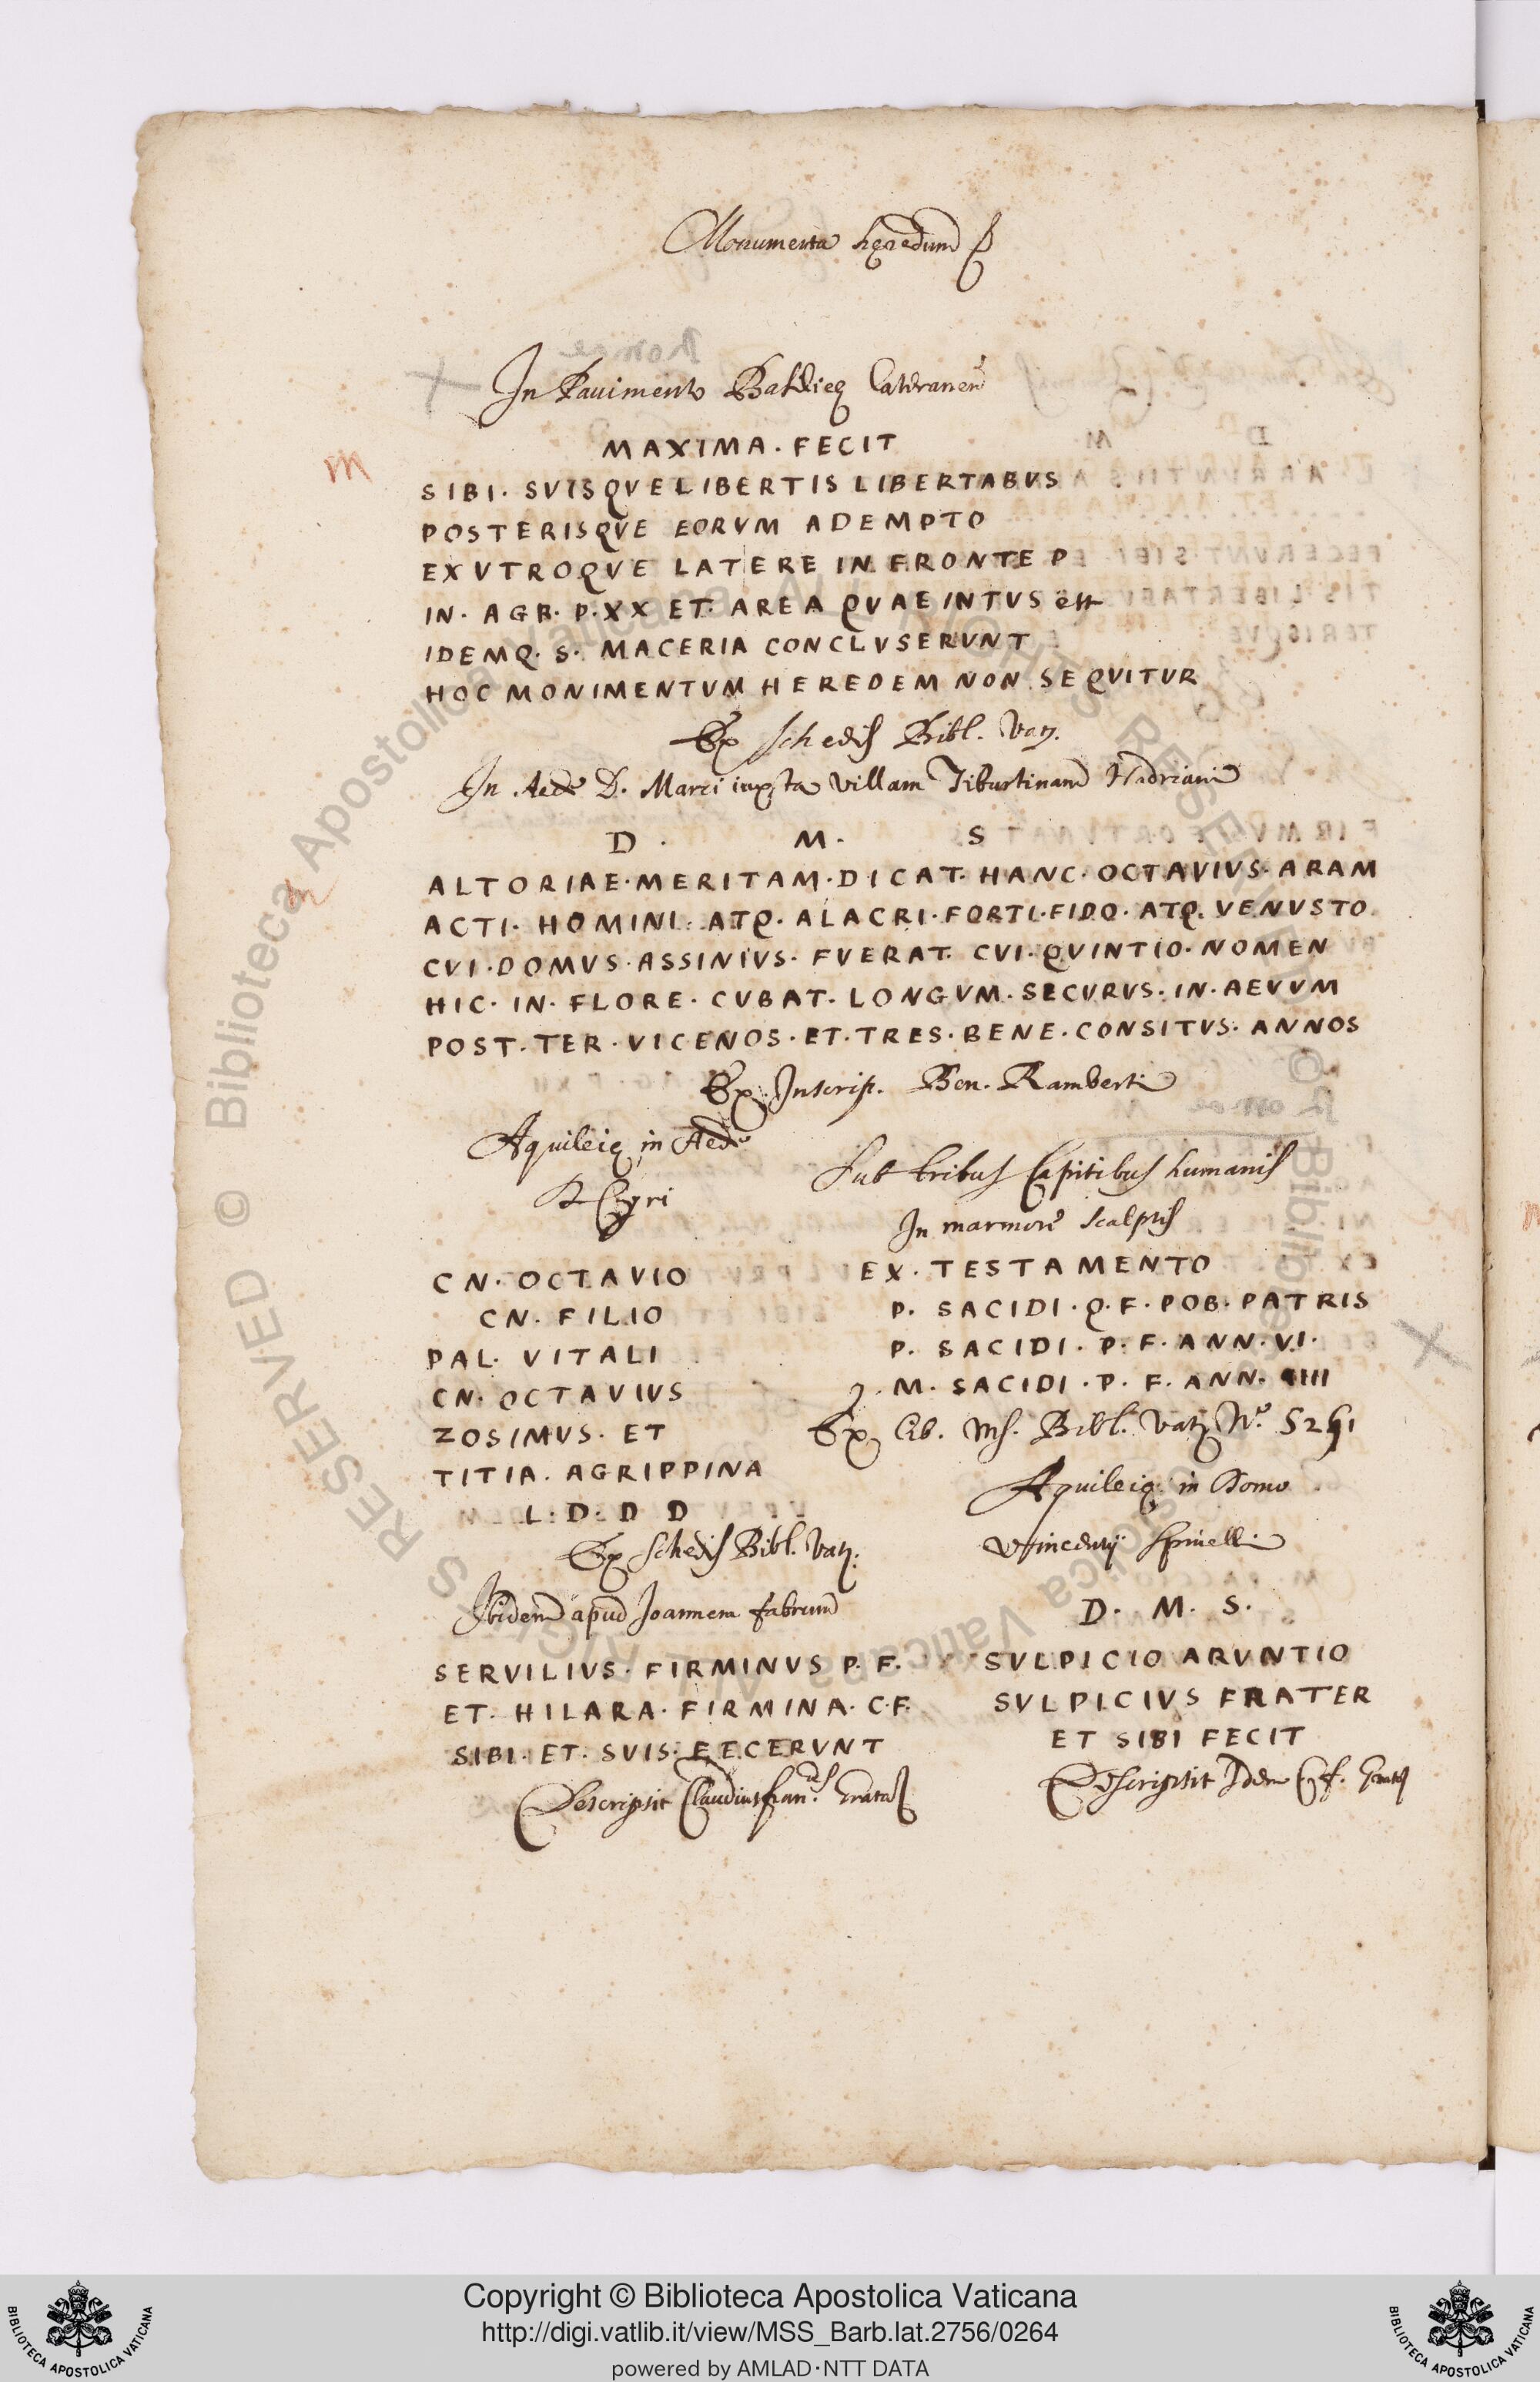 Monumenta hęredum
In Pavimento Basilicę Lateranen
MAXIMA. FECIT
SIBI. SVISQVE LIBERTIS LIBERTABVS
POSTERISQVE EORVM ADEMPTO
EX VTROQVE LATERE IN FRONTE P
IN. AGR. P. XX ET. AREA QVAE INTVS est
IDEMQ. S. MACERIA CONCLVSERVNT
HOC MONIMENTVM HEREDEM NON SEQVITVR
Ex Schedis Bibl. Vat.
In Aede D. Marci iuxta villam Tiburtinam Hadriani
D. M. S
ALTORIAE. MERITAM. DICAT. HANC. OCTAVIVS. ARAM
ACTI. HOMINI. ATQ. ALACRI. FORTI. FIDO. ATQ. VENVSTO
CVI. DOMVS. ASSINIVS. FVERAT. CVI. QVINTIO. NOMEN
HIC. IN. FLORE. CVBAT. LONGVM. SECVRVS. IN. AEVVM
POST. TER. VICENOS. ET. TRES. BENE. CONSITVS. ANNOS
Ex Inscrip. Ben. Ramberti
Aquileię in Aede
CN. OCTAVIO
CN. FILIO
PAL. VITALI
CN. OCTAVIVS
ZOSIMVS. ET
TITIA. AGRIPPINA
L. D. D D
Ex Schedis Bibl. Vat.
Ibidem apud Joannem fabrum
SERVILIVS. FIRMINVS P. F.
ET. HILARA. FIRMINA. C. F.
SIBI. ET. SVIS. FECERVNT
Descripsit Claudius fran.
Sub tribus Capitibus humanis
In marmore scalptis
EX. TESTAMENTO
P. SACIDI. Q. F. POB. PATRIS
P. SACIDI. P. F. ANN. VI.
M. SACIDI. P. F. ANN. IIII
Ex Lib. Ms. Bibl. Vat.
Aquileię in Domo
Spinelli
D. M. S.
SVLPICIO ARVNTIO
SVLPICIVS FRATER
ET SIBI FECIT
Descripsit Idem
m
m
© Biblioteca Apostolica Vaticana ALL RIGHTS RESERVED
Copyright © Biblioteca Apostolica Vaticana
http://digi.vatlib.it/view/MSS_Barb.lat.2756/0264
powered by AMLAD·NTT DATA
BIBLIOTECA APOSTOLICA VATICANA
BIBLIOTECA APOSTOLICA VATICANA